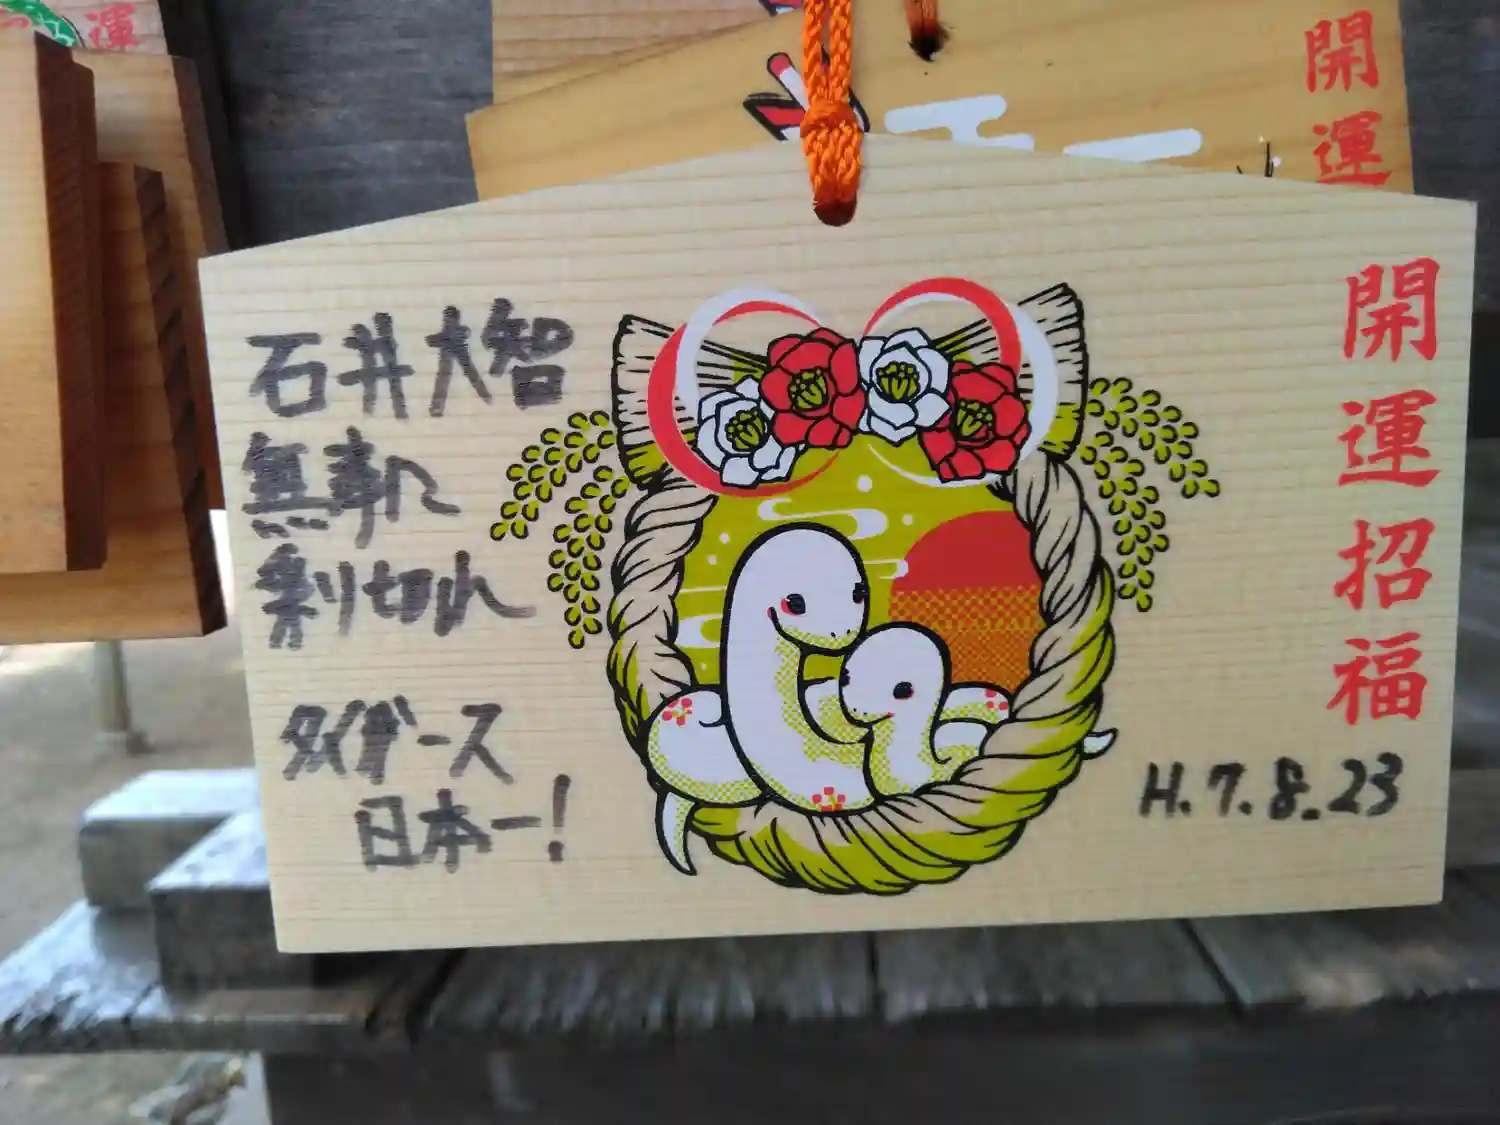 開運
運
開運招福
石井大智
無事に
乗り切れ
タイガース
日本一!
H.7.8.23